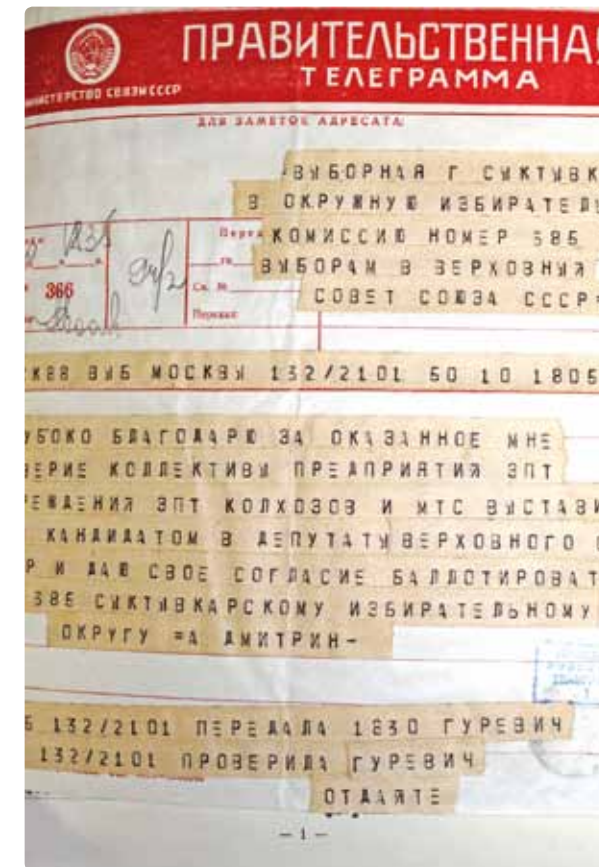 ПРАВИТЕЛЬСТВЕННАЯ
ТЕЛЕГРАММА
ИСТЕРСТВО СВЯЗИ СССР
ДЛЯ ЗАМЕТОК АДРЕСАТА
ВЫБОРНАЯ Г СЫКТЫВК
В ОКРУЖНУЮ ИЗБИРАТЕЛЬ
КОМИССИЮ НОМЕР 586
ВЫБОРАМ В ВЕРХОВНЫЙ
СОВЕТ СОЮЗА СССР=
366
Сл. №
КВВ ВЫБ МОСКВЫ 132/2101 50 10 1805
УБОКО БЛАГОДАРЮ ЗА ОКАЗАННОЕ МНЕ
ВЕРИЕ КОЛЛЕКТИВЫ ПРЕДПРИЯТИЯ ЗПТ
РЕЖДЕНИЯ ЗПТ КОЛХОЗОВ И МТС ВЫСТАВИ
КАНДИДАТОМ В ДЕПУТАТЫ ВЕРХОВНОГО
Р И ДАЮ СВОЕ СОГЛАСИЕ БАЛЛОТИРОВАТ
586 СЫКТЫВКАРСКОМУ ИЗБИРАТЕЛЬНОМУ
ОКРУГУ =А ДМИТРИН-
Б 132/2101 ПЕРЕДАЛА 1830 ГУРЕВИЧ
132/2101 ПРОВЕРИЛА ГУРЕВИЧ
ОТДАЙТЕ
— 1 —